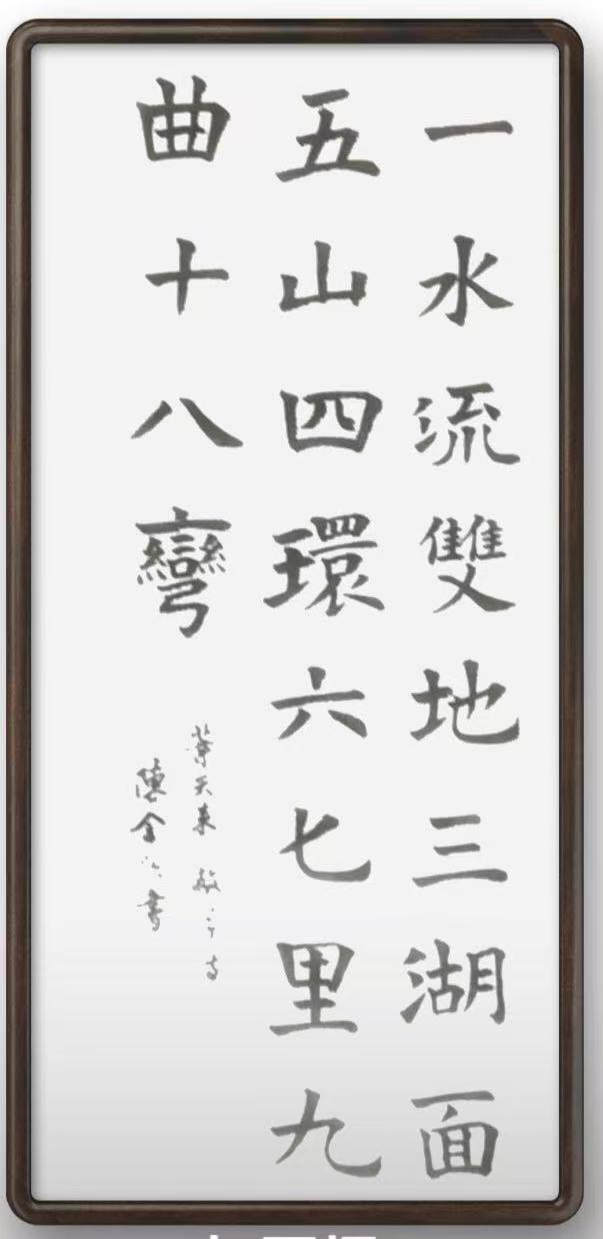 一水流雙地三湖面
五山四環六七里九
曲十八彎
葉天來
陳金書